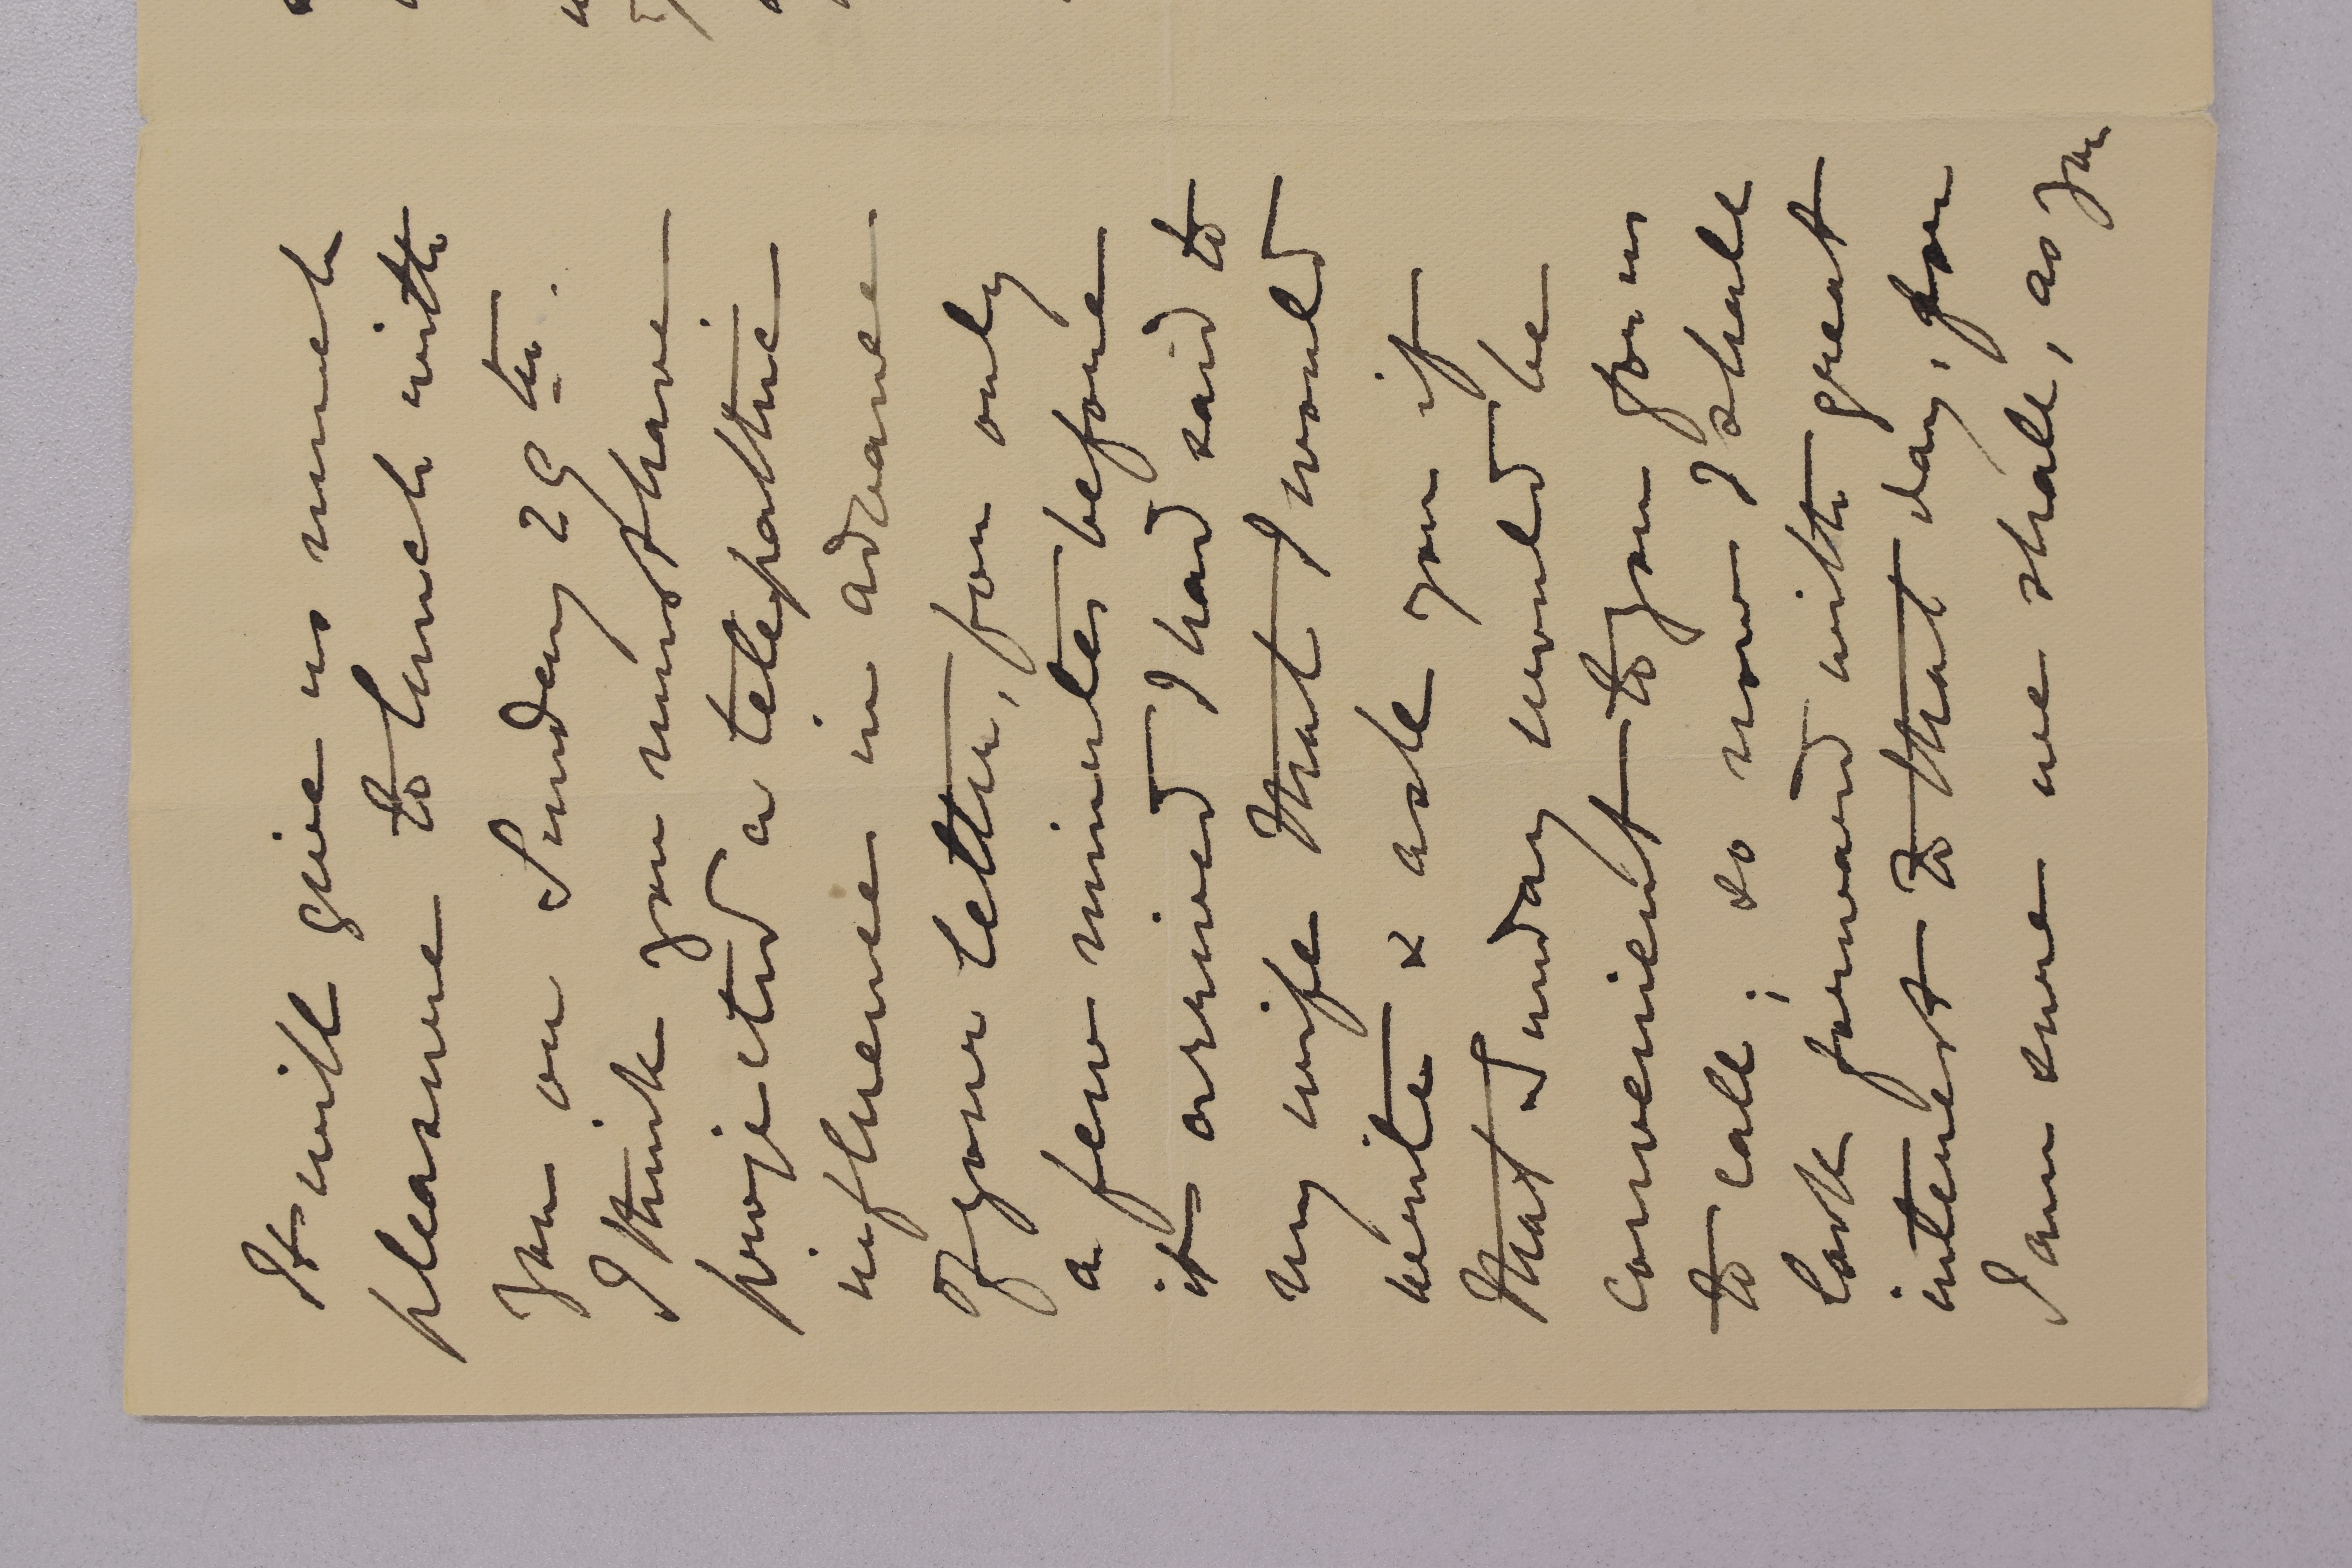 It will give us much
pleasure to lunch with
you on Sunday 29th.
I think you must have
projected a telepathic
influence in advance
of your letter, for only
a few minutes before
it arrived I had said to
my wife that I would
write & ask you if
that Sunday would be
convenient to you for us
to call; so now I shall
look forward with great
interest to that day, for
I am sure we shall, as you